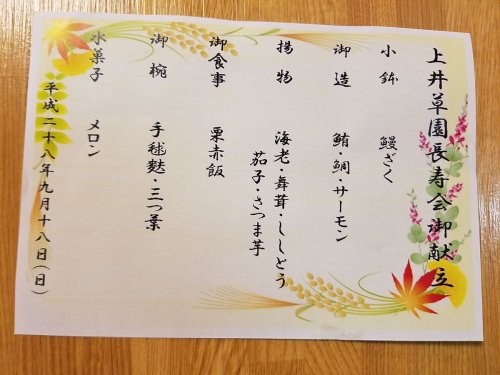 上井草園長寿会御献立
小鉢 鰻ざく
御造 鮪・鯛・サーモン
揚物 海老・舞茸・ししとう
茄子・さつま芋
御食事 栗赤飯
御椀 手毬麩・三つ葉
水菓子 メロン
平成二十八年九月十八日(日)